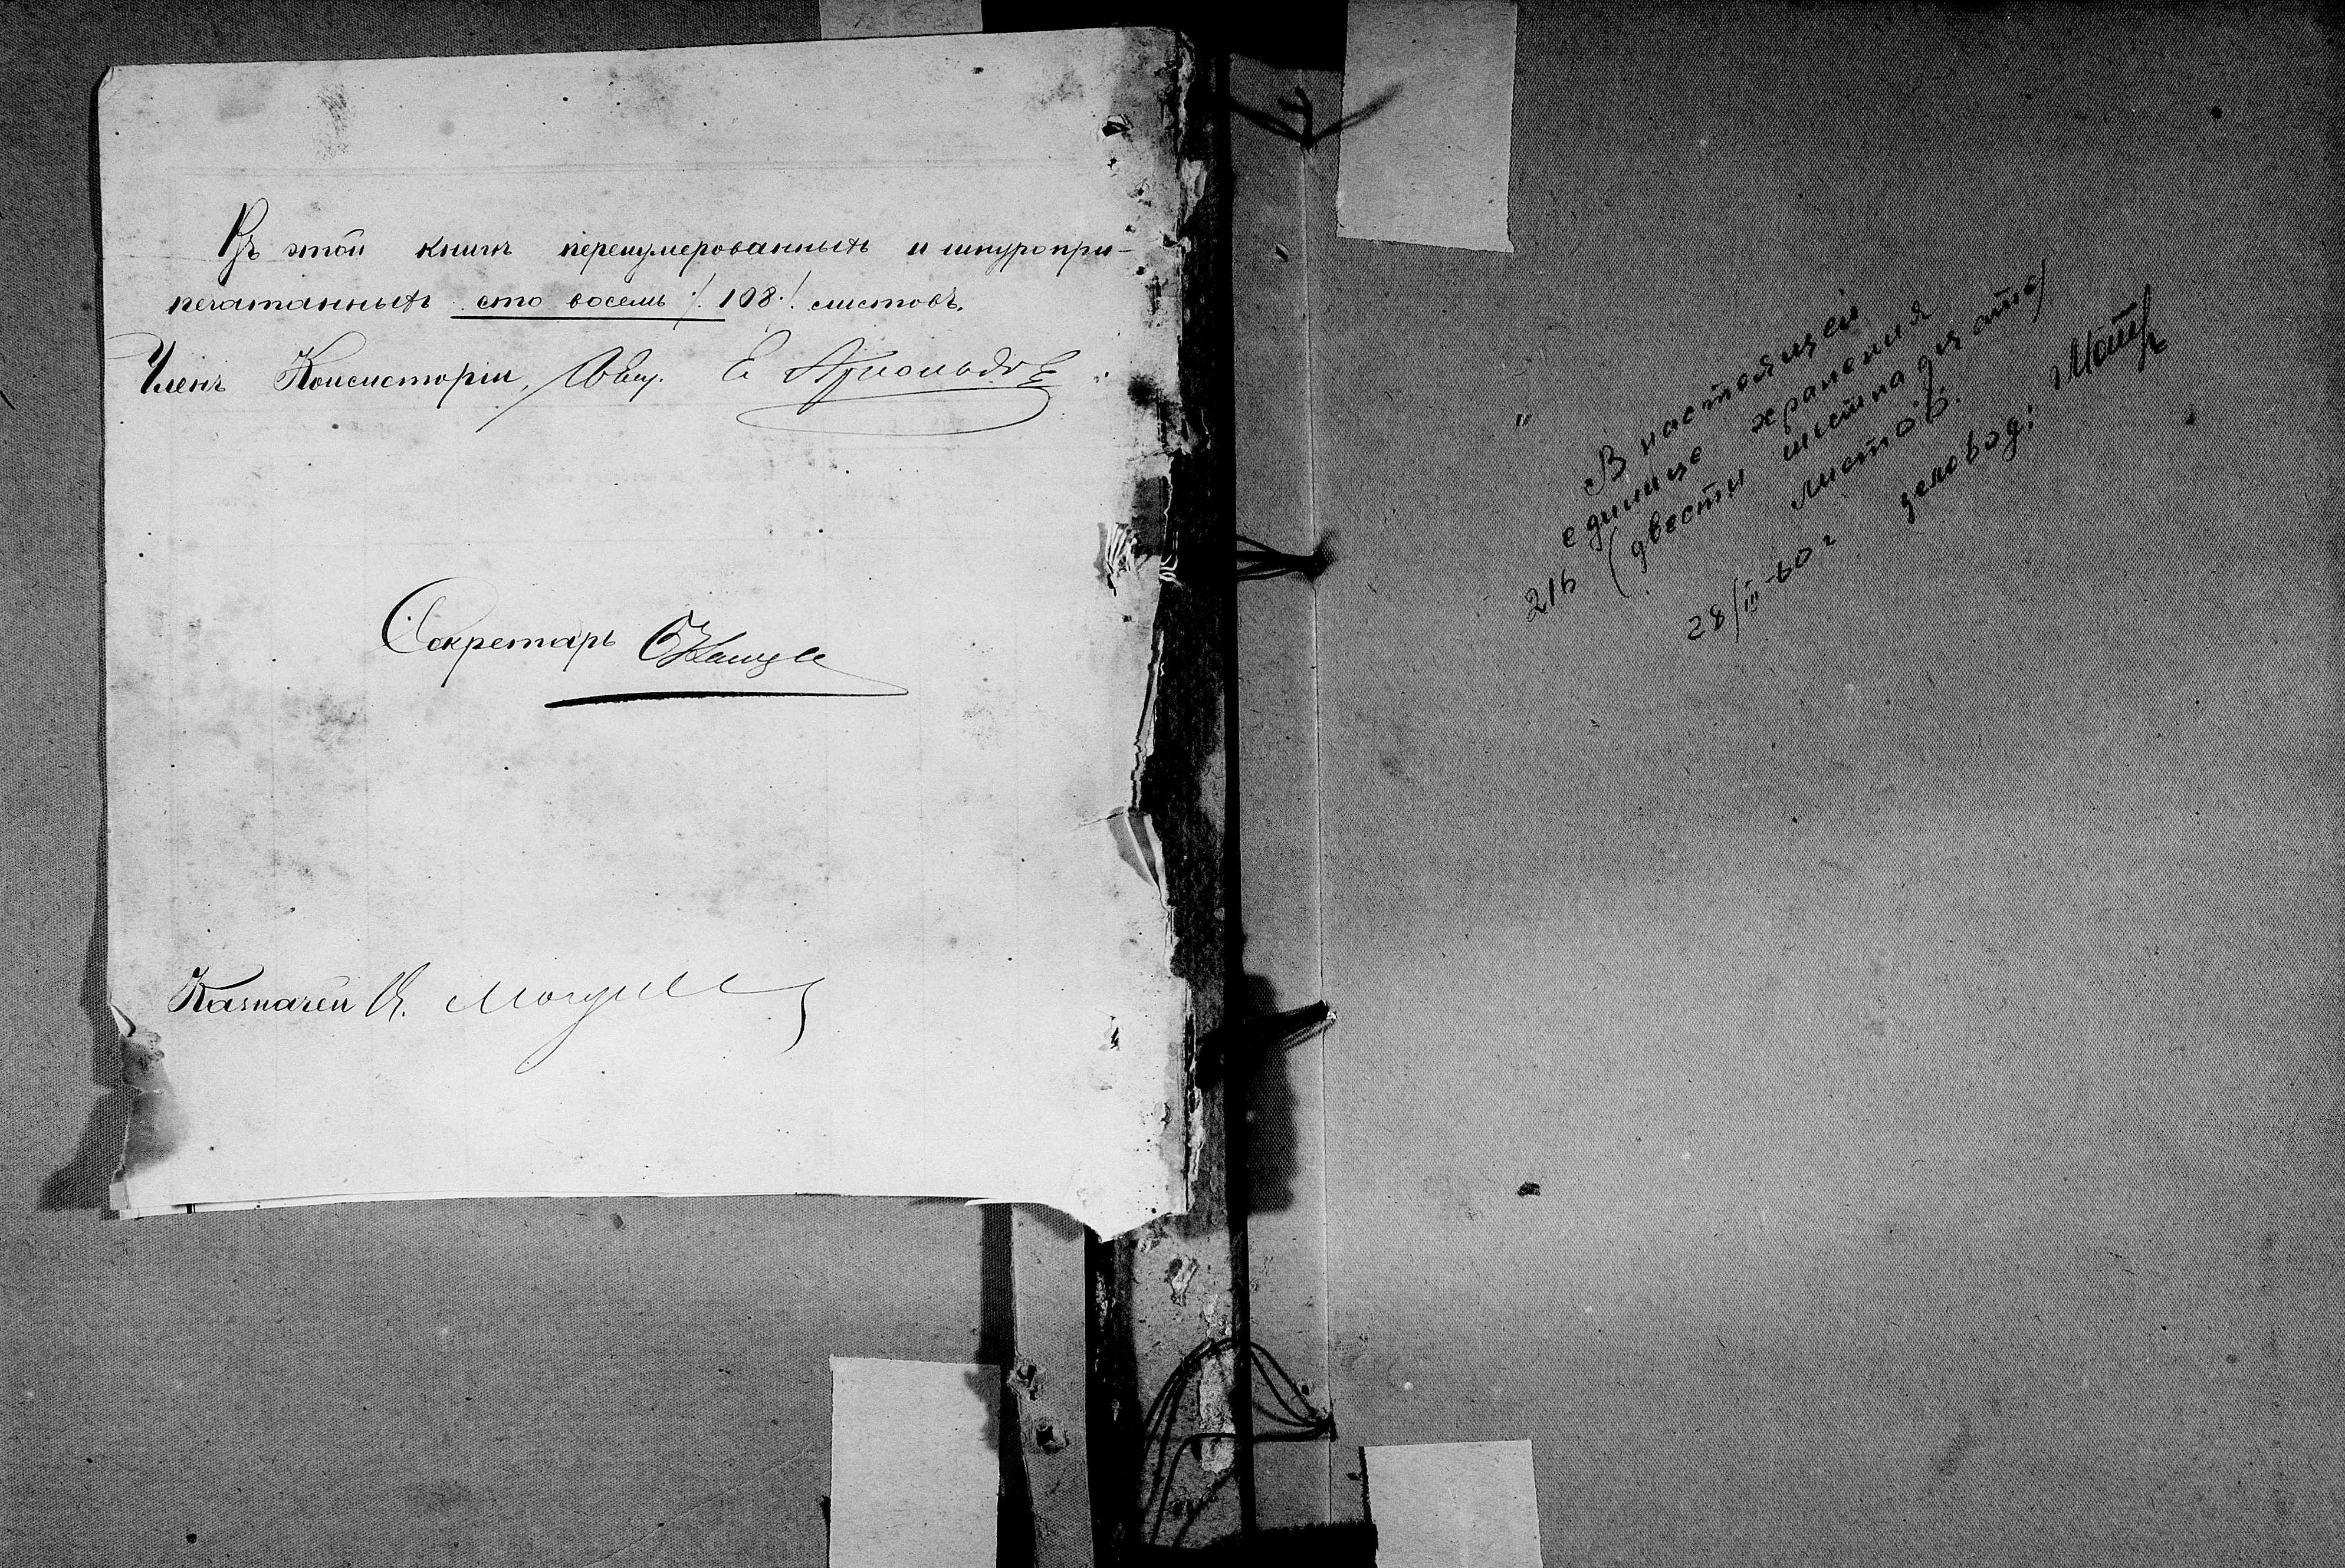 Въ этой книгѣ перенумерованныхъ и шнуропри-
печатанныхъ сто восемь /.108./ листовъ.
Членъ Консисторіи, Свящ. Е
Секретарь
Казначей
В настоящей
единице хранения
216 (двести шестнадцать)
листов.
28/III-60 г деловод: